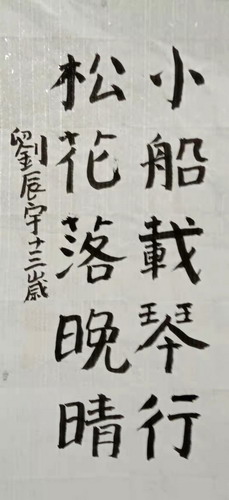 小船載琴行
松花落晚晴
劉辰宇十三歲